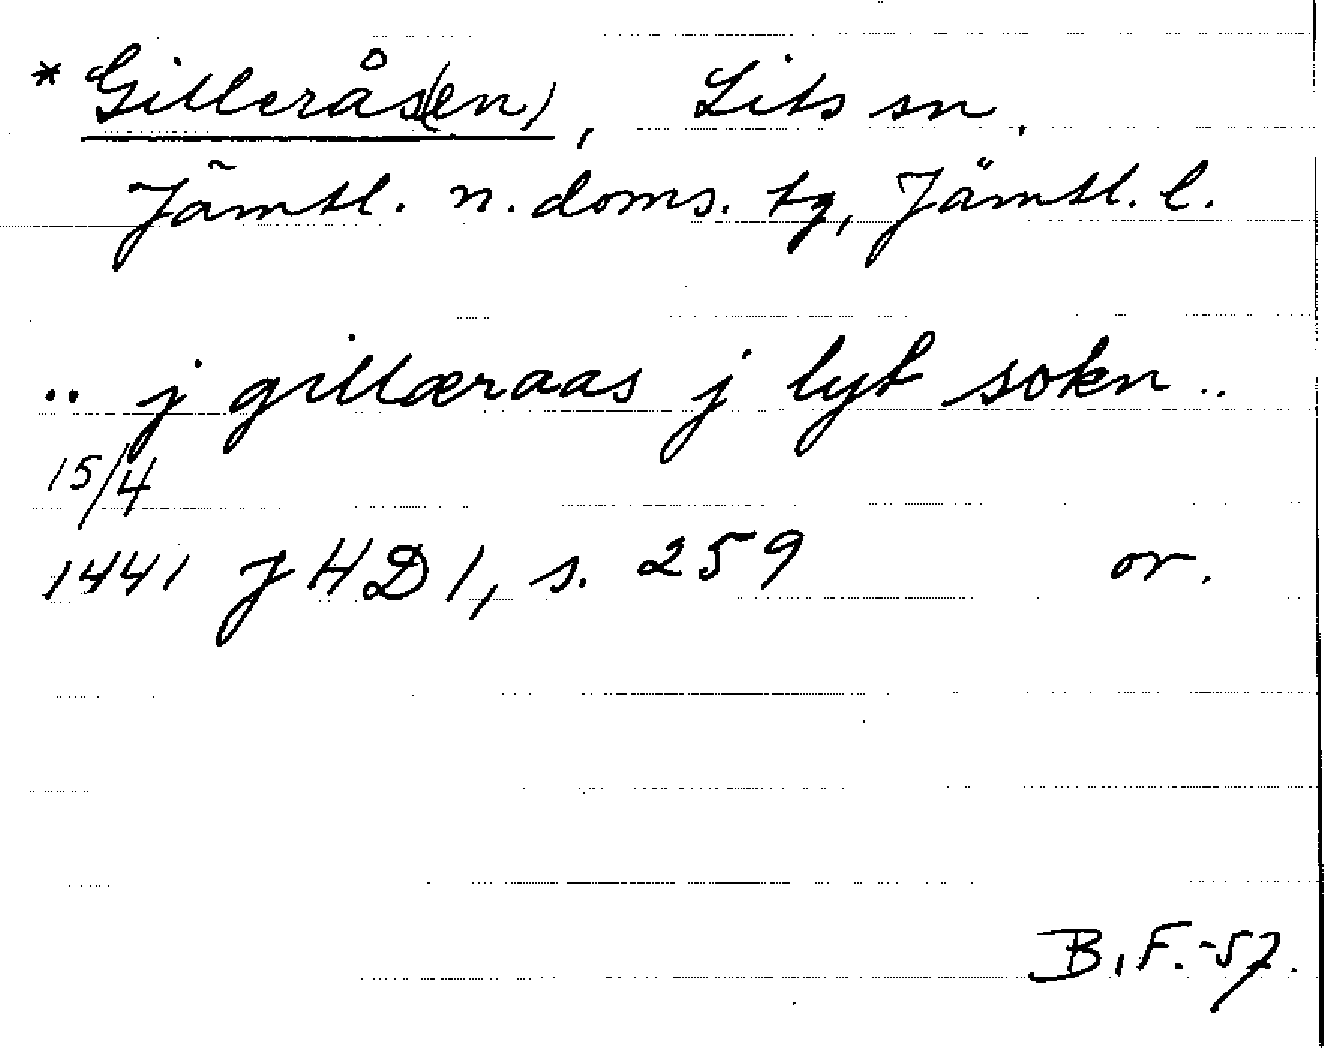 * Gillerås(en), Lits sn.
Jämtl. n. doms. tg, Jämtl. l.
.. j gillæraas j lyt sokn ..
15/4
1441 JHD 1, s. 259 or.
B.F.-57.